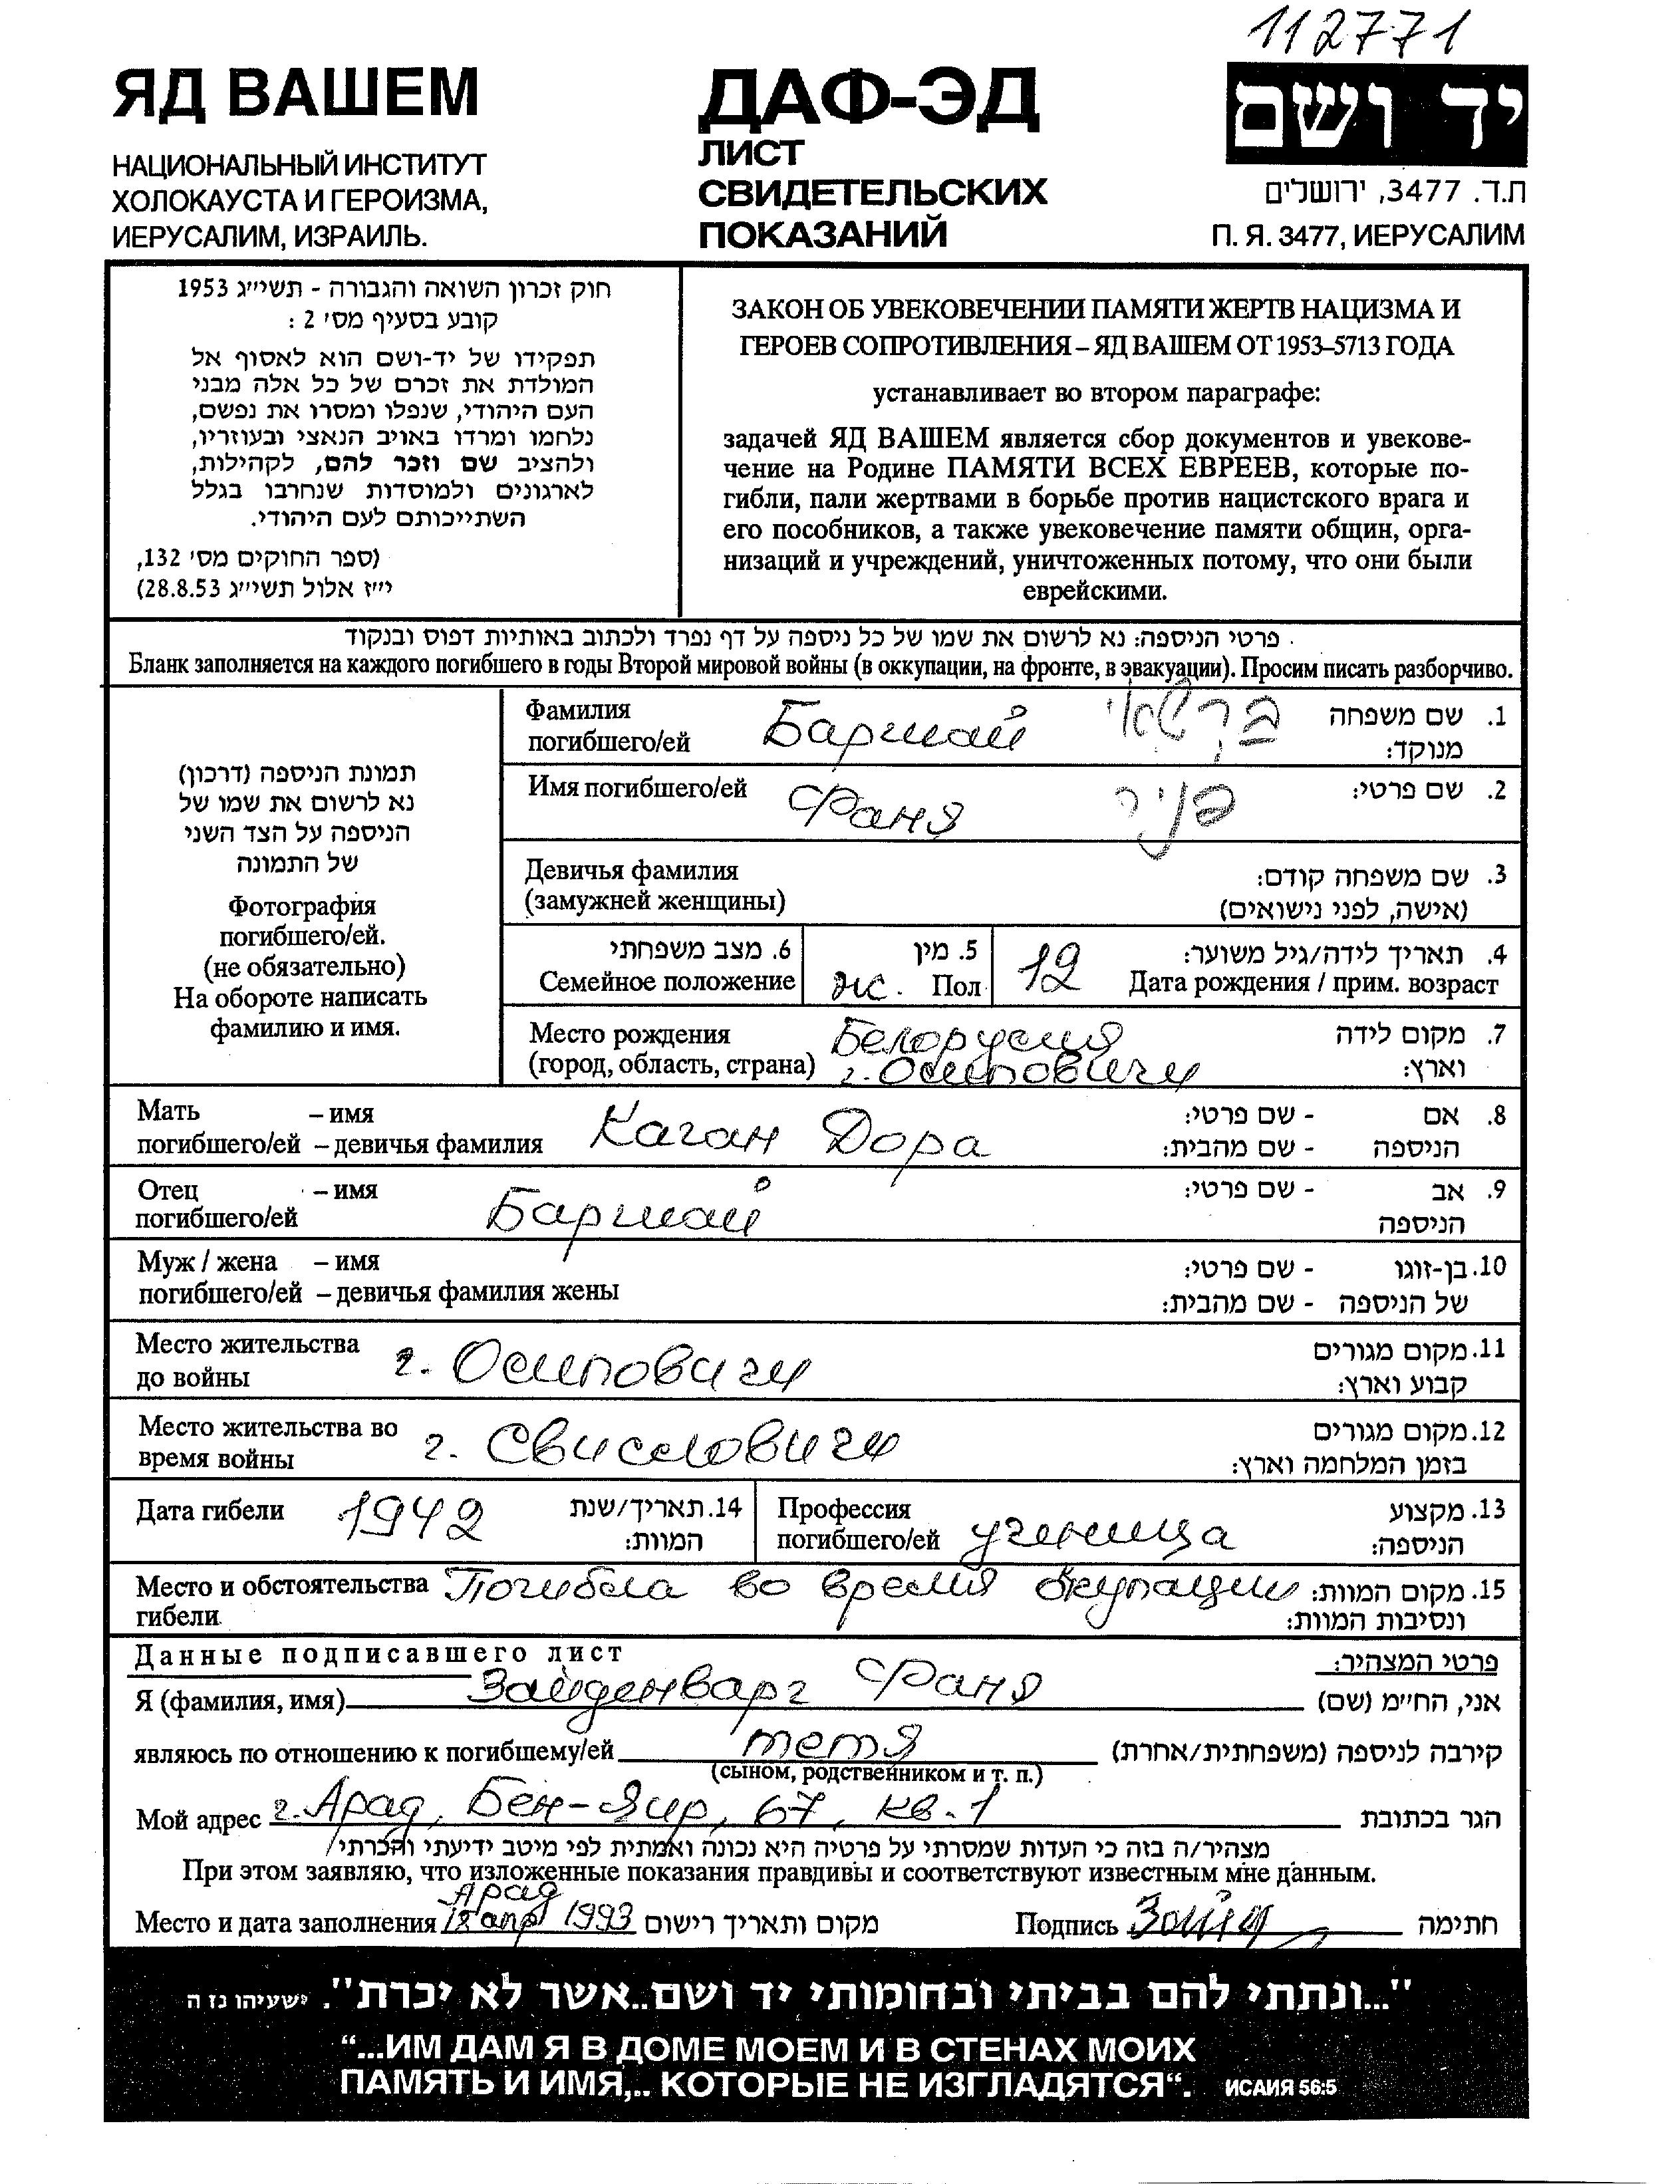 112771
ЯД ВАШЕМ
НАЦИОНАЛЬНЫЙ ИНСТИТУТ
ХОЛОКАУСТА И ГЕРОИЗМА,
ИЕРУСАЛИМ, ИЗРАИЛЬ.
ДАФ-ЭД
ЛИСТ
СВИДЕТЕЛЬСКИХ
ПОКАЗАНИЙ
יד ושם
ת.ד. 3477, ירושלים
П. Я. 3477, ИЕРУСАЛИМ
חוק זכרון השואה והגבורה - תשי״ג 1953
קובע בסעיף מס׳ 2 :
תפקידו של יד-ושם הוא לאסוף אל
המולדת את זכרם של כל אלה מבני
העם היהודי, שנפלו ומסרו את נפשם,
נלחמו ומרדו באויב הנאצי ובעוזריו,
ולהציב שם וזכר להם, לקהילות,
לארגונים ולמוסדות שנחרבו בגלל
השתייכותם לעם היהודי.
(ספר החוקים מס׳ 132,
י״ז אלול תשי״ג 28.8.53)
ЗАКОН ОБ УВЕКОВЕЧЕНИИ ПАМЯТИ ЖЕРТВ НАЦИЗМА И
ГЕРОЕВ СОПРОТИВЛЕНИЯ – ЯД ВАШЕМ ОТ 1953–5713 ГОДА
устанавливает во втором параграфе:
задачей ЯД ВАШЕМ является сбор документов и увекове-
чение на Родине ПАМЯТИ ВСЕХ ЕВРЕЕВ, которые по-
гибли, пали жертвами в борьбе против нацистского врага и
его пособников, а также увековечение памяти общин, орга-
низаций и учреждений, уничтоженных потому, что они были
еврейскими.
פרטי הניספה: נא לרשום את שמו של כל ניספה על דף נפרד ולכתוב באותיות דפוס ובנקוד
Бланк заполняется на каждого погибшего в годы Второй мировой войны (в оккупации, на фронте, в эвакуации). Просим писать разборчиво.
תמונת הניספה (דרכון)
נא לרשום את שמו של
הניספה על הצד השני
של התמונה
Фотография
погибшего/ей.
(не обязательно)
На обороте написать
фамилию и имя.
Фамилия Баршай ברשאי 1. שם משפחה
погибшего/ей מנוקד:
Имя погибшего/ей Фаня 2. שם פרטי:
Девичья фамилия 3. שם משפחה קודם:
(замужней женщины) (אישה, לפני נישואים)
6. מצב משפחתי 5. מין 4. תאריך לידה/גיל משוער:
Семейное положение ж. Пол 12 Дата рождения / прим. возраст
Место рождения Белорусия 7. מקום לידה
(город, область, страна) г. Осиповичи וארץ:
Мать – имя Каган Дора 8. אם - שם פרטי:
погибшего/ей – девичья фамилия הניספה - שם מהבית:
Отец – имя Баршай 9. אב - שם פרטי:
погибшего/ей הניספה
Муж / жена – имя 10. בן-זוגו - שם פרטי:
погибшего/ей – девичья фамилия жены של הניספה - שם מהבית:
Место жительства г. Осиповичи 11. מקום מגורים
до войны קבוע וארץ:
Место жительства во г. Свисловичи 12. מקום מגורים
время войны בזמן המלחמה וארץ:
Дата гибели 1942 14. תאריך/שנת המוות:
Профессия 13. מקצוע
погибшего/ей ученица הניספה:
Место и обстоятельства Погибла во время окупации 15. מקום המוות:
гибели. ונסיבות המוות:
Данные подписавшего лист פרטי המצהיר:
Я (фамилия, имя) Зайденварг Фаня אני, הח״מ (שם)
являюсь по отношению к погибшему/ей тетя קירבה לניספה (משפחתית/אחרת)
(сыном, родственником и т. п.)
Мой адрес г. Арад, Бен-Яир, 67, кв. 1 הגר בכתובת
מצהיר/ה בזה כי העדות שמסרתי על פרטיה היא נכונה ואמתית לפי מיטב ידיעתי והכרתי/
При этом заявляю, что изложенные показания правдивы и соответствуют известным мне данным.
Арад
Место и дата заполнения 18 апр 1993 מקום ותאריך רישום Подпись חתימה
"...ונתתי להם בביתי ובחומותי יד ושם..אשר לא יכרת". ישעיהו נז ה
“...ИМ ДАМ Я В ДОМЕ МОЕМ И В СТЕНАХ МОИХ
ПАМЯТЬ И ИМЯ,.. КОТОРЫЕ НЕ ИЗГЛАДЯТСЯ“. ИСАИЯ 56:5